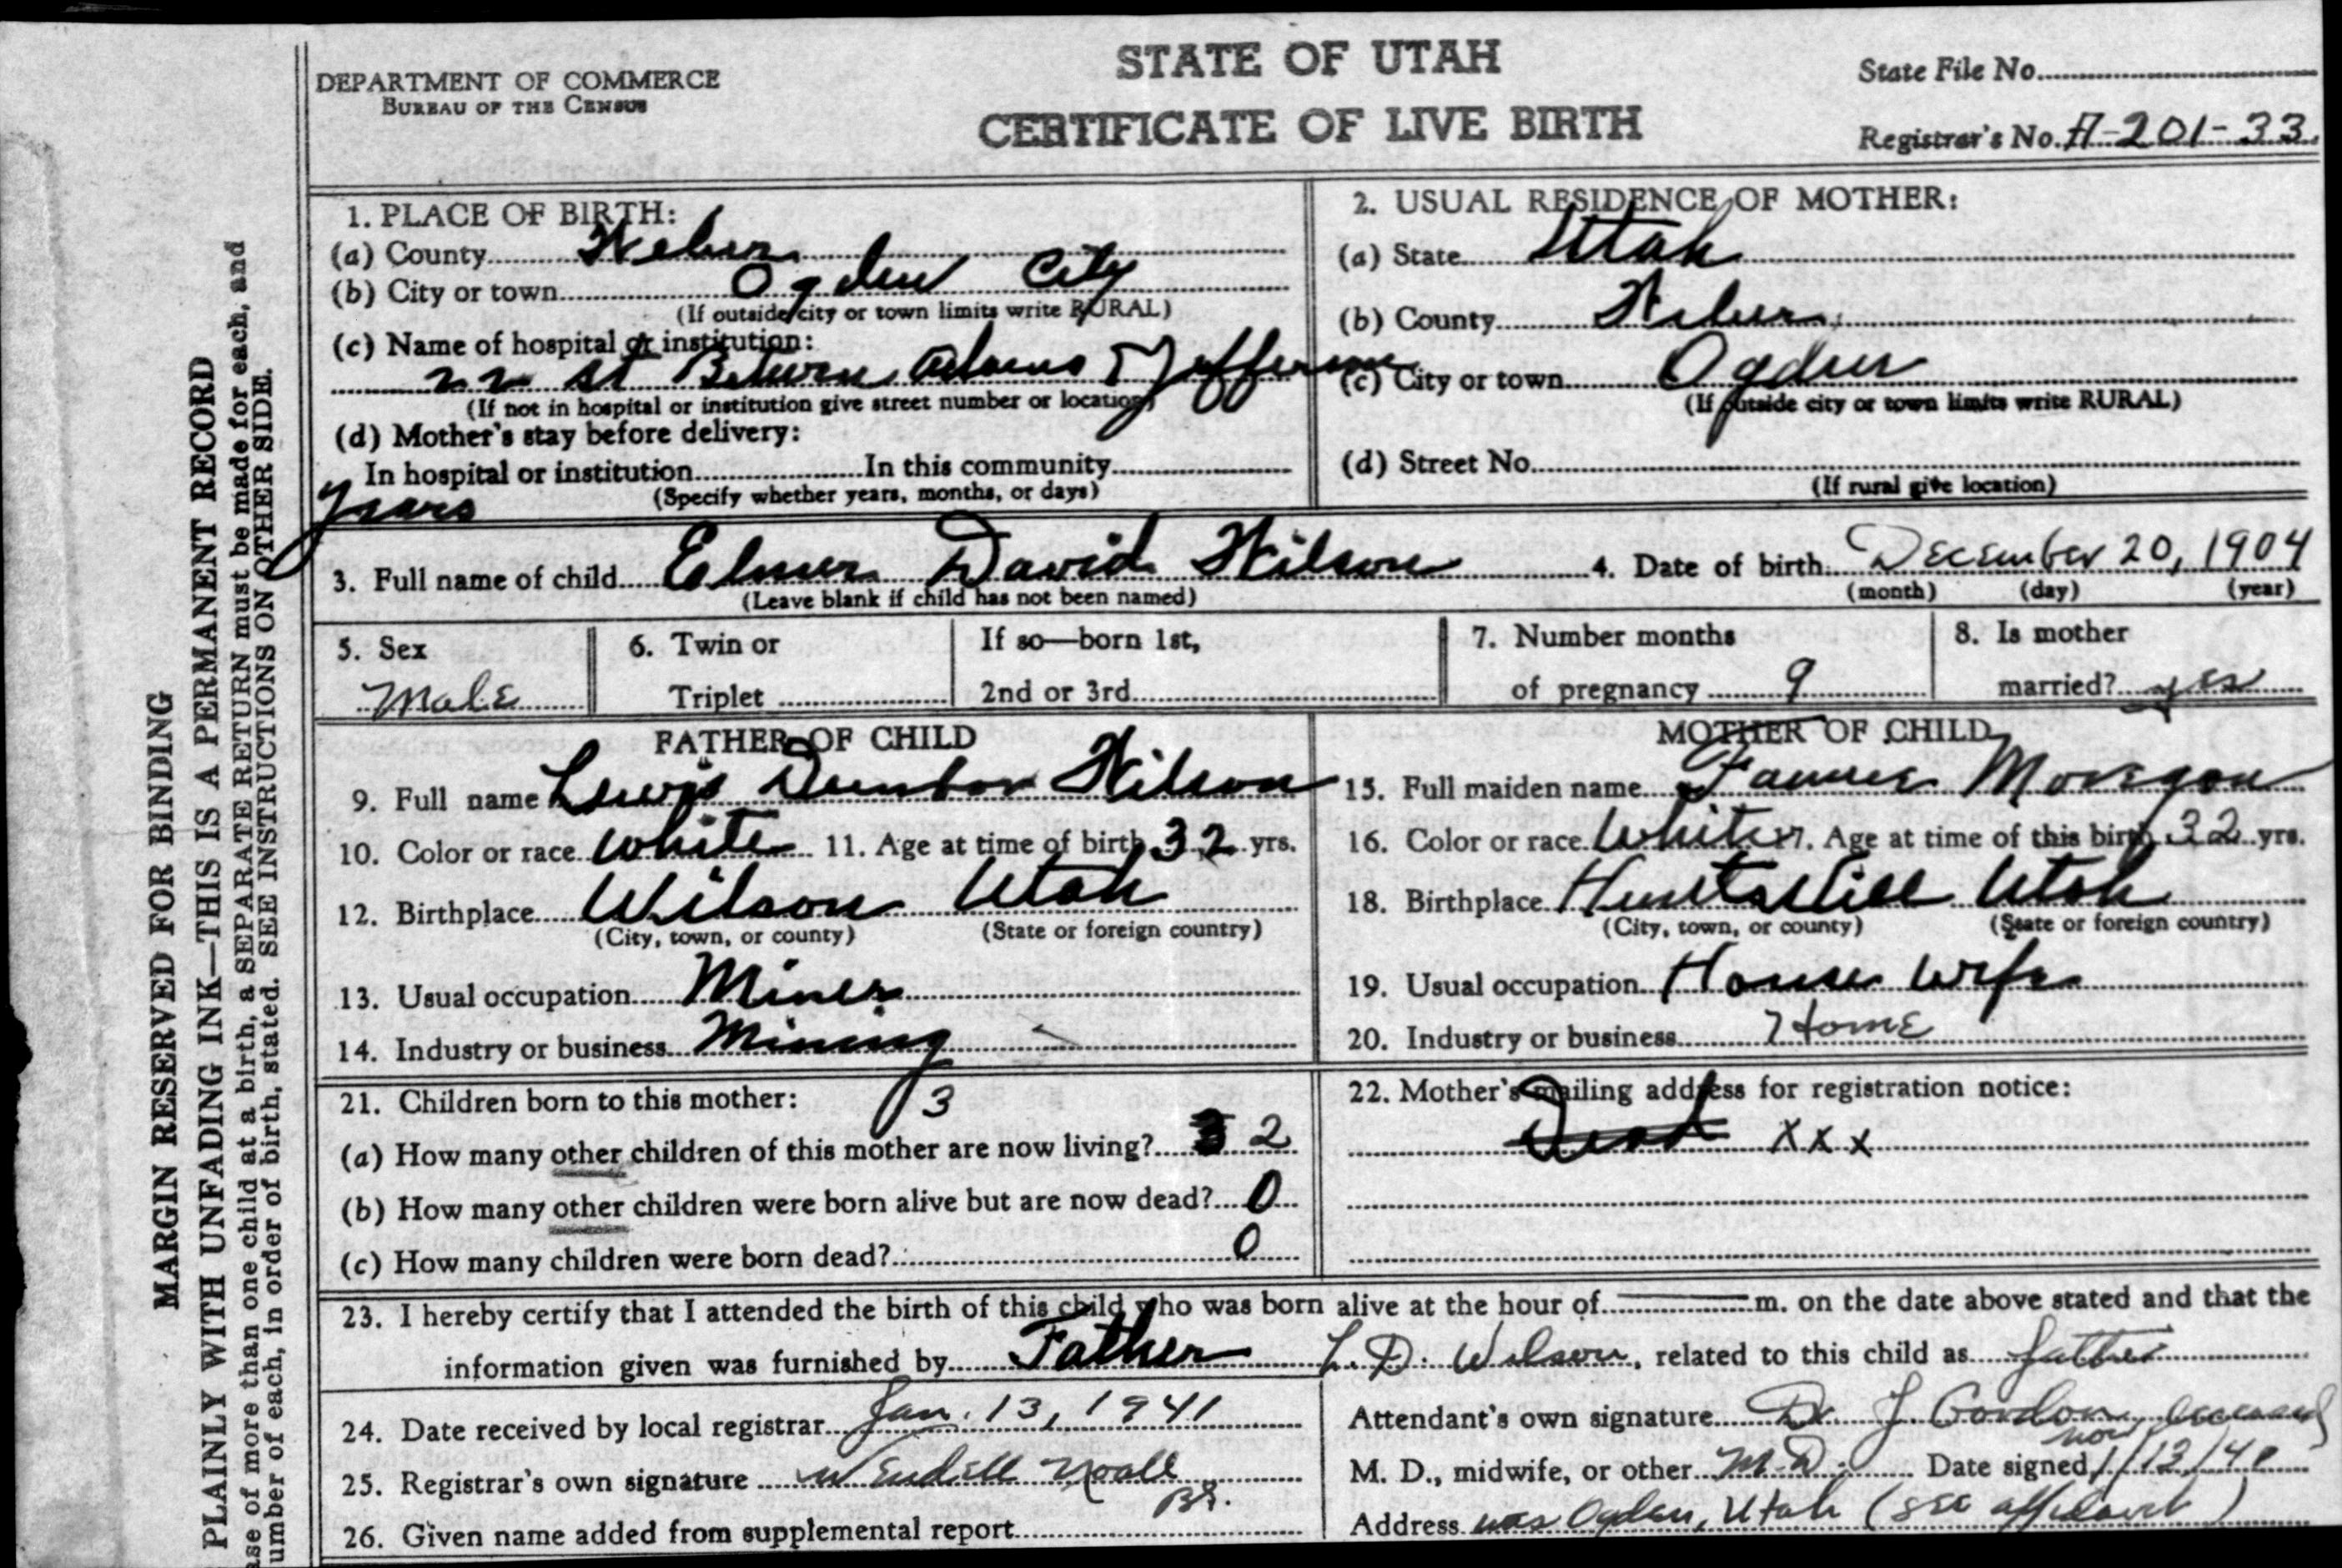 STATE OF UTAH
CERTIFICATE OF LIVE BIRTH
DEPARTMENT OF COMMERCE
BUREAU OF THE CENSUS
State File No.
Registrar's No. A-201-33
MARGIN RESERVED FOR BINDING
PLAINLY WITH UNFADING INK—THIS IS A PERMANENT RECORD
ase of more than one child at a birth, a SEPARATE RETURN must be made for each, and
umber of each, in order of birth, stated. SEE INSTRUCTIONS ON OTHER SIDE.
1. PLACE OF BIRTH:
(a) County Weber
(b) City or town Ogden City
(If outside city or town limits write RURAL)
(c) Name of hospital or institution:
22 st Between Adams & Jefferson
(If not in hospital or institution give street number or location)
(d) Mother's stay before delivery:
In hospital or institution In this community
years
(Specify whether years, months, or days)
2. USUAL RESIDENCE OF MOTHER:
(a) State Utah
(b) County Weber
(c) City or town Ogden
(If outside city or town limits write RURAL)
(d) Street No.
(If rural give location)
3. Full name of child Elmer David Wilson 4. Date of birth December 20, 1904
(Leave blank if child has not been named) (month) (day) (year)
5. Sex Male
6. Twin or
Triplet
If so—born 1st,
2nd or 3rd
7. Number months
of pregnancy 9
8. Is mother
married? yes
FATHER OF CHILD
9. Full name Lewis Dunbar Wilson
10. Color or race White 11. Age at time of birth 32 yrs.
12. Birthplace Wilson Utah
(City, town, or county) (State or foreign country)
13. Usual occupation Miner
14. Industry or business Mining
MOTHER OF CHILD
15. Full maiden name Fannie
16. Color or race White 17. Age at time of this birth 32 yrs.
18. Birthplace Huntsville Utah
(City, town, or county) (State or foreign country)
19. Usual occupation House wife
20. Industry or business Home
21. Children born to this mother: 3
(a) How many other children of this mother are now living? 2
(b) How many other children were born alive but are now dead? 0
(c) How many children were born dead? 0
22. Mother's mailing address for registration notice:
Dead xxx
23. I hereby certify that I attended the birth of this child who was born alive at the hour of m. on the date above stated and that the
information given was furnished by Father L. D. Wilson, related to this child as father
24. Date received by local registrar Jan. 13, 1941
25. Registrar's own signature Wendell Noall
26. Given name added from supplemental report
Attendant's own signature Dr. J Gordon, now deceased
M. D., midwife, or other M.D. Date signed 1/13/40
Address was Ogden, Utah (see affidavit)